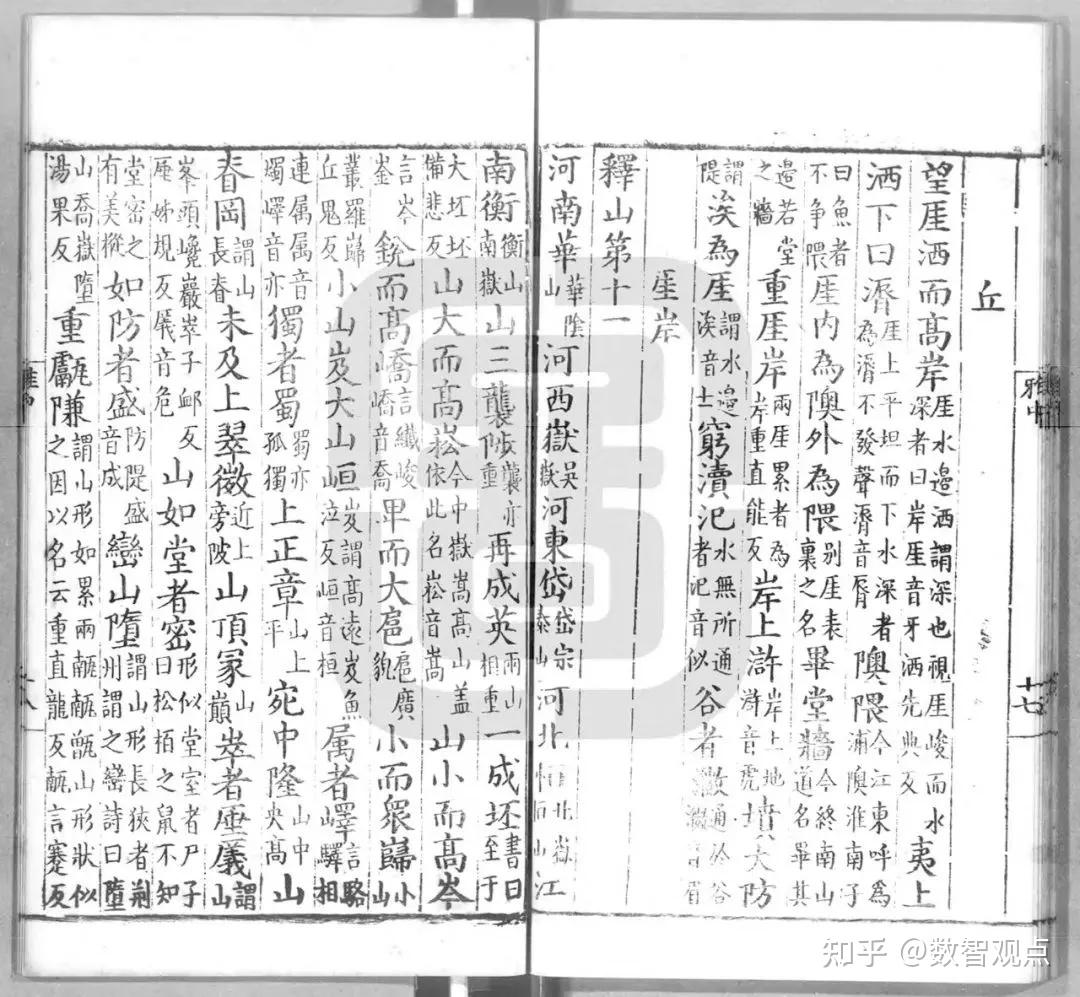 丘
望厓洒而高岸厓水邉洒謂深也視厓峻而水深者曰岸厓音牙洒先典反夷上
洒下曰漘厓上平坦而下水深者為漘不發聲漘音脣隩隈今江東呼為浦隩淮南子
曰魚者不争隈厓内為隩外為隈别厓表裏之名畢堂牆今終南山道名畢其
邉若堂之牆重厓岸兩厓累者為岸重直能反岸上滸岸上地滸音虎墳大防
謂隄涘為厓謂水邉涘音士窮瀆汜水無所通者汜音似谷者溦通於谷溦音眉
厓岸
釋山第十一
河南華華陰山河西嶽吳嶽河東岱岱宗泰山河北恒北嶽恒山江
南衡衡山南嶽山三襲陟襲亦重再成英兩山相重一成坯書曰至于
大坯坯備悲反山大而高崧今中嶽嵩高山盖依此名崧音嵩山小而高岑
言岑崟鋭而高嶠言纎峻嶠音喬卑而大扈扈廣貌小而衆巋小山
叢羅巋丘鬼反小山岌大山峘岌謂高遠岌魚泣反峘音桓属者嶧言駱驛相
連属属音燭嶧音亦獨者蜀蜀亦孤獨上正章山上平宛中隆山中央高山
脊岡謂山長脊未及上翠微近上旁陂山頂冢山巔崒者厜㕒謂山
峯頭巉巖崒子䘏反厜姊規反㕒音危山如堂者密形似堂室者尸子曰松栢之鼠不知
堂密之有美樅如防者盛防隄盛音成巒山墮謂山形長狹者荆州謂之巒詩曰墮
山喬嶽墮湯果反重甗隒謂山形如累兩甗甗甑山形狀似之因以名云重直龍反甗言蹇反
雅中
十七
知乎 @数智观点